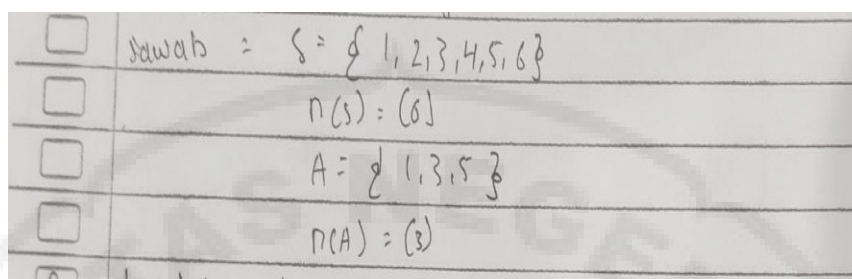 Jawab : S = { 1, 2, 3, 4, 5, 6}
n(S) : (6)
A = { 1, 3, 5 }
n(A) : (3)